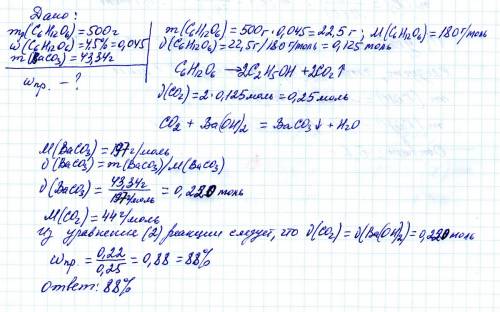 Дано:
mр(C6H12O6)=500г
ω(C6H12O6)=4,5%=0,045
m(BaCO3)=43,34г
ωпр. – ?
m(C6H12O6)=500г·0,045=22,5г; M(C6H12O6)=180г/моль
ν(C6H12O6)=22,5г/180г/моль=0,125моль
C6H12O6 → 2C2H5OH + 2CO2↑
ν(CO2)=2·0,125моль=0,25моль
CO2 + Ba(OH)2 = BaCO3↓ + H2O
M(BaCO3)=197г/моль
ν(BaCO3)=m(BaCO3)/M(BaCO3)
ν(BaCO3)=43,34г/197г/моль=0,220моль
M(CO2)=44г/моль
Из уравнения (2) реакции следует, что ν(CO2)=ν(Ba(OH)2)=0,220моль
ωпр.=0,22/0,25=0,88=88%
ответ: 88%